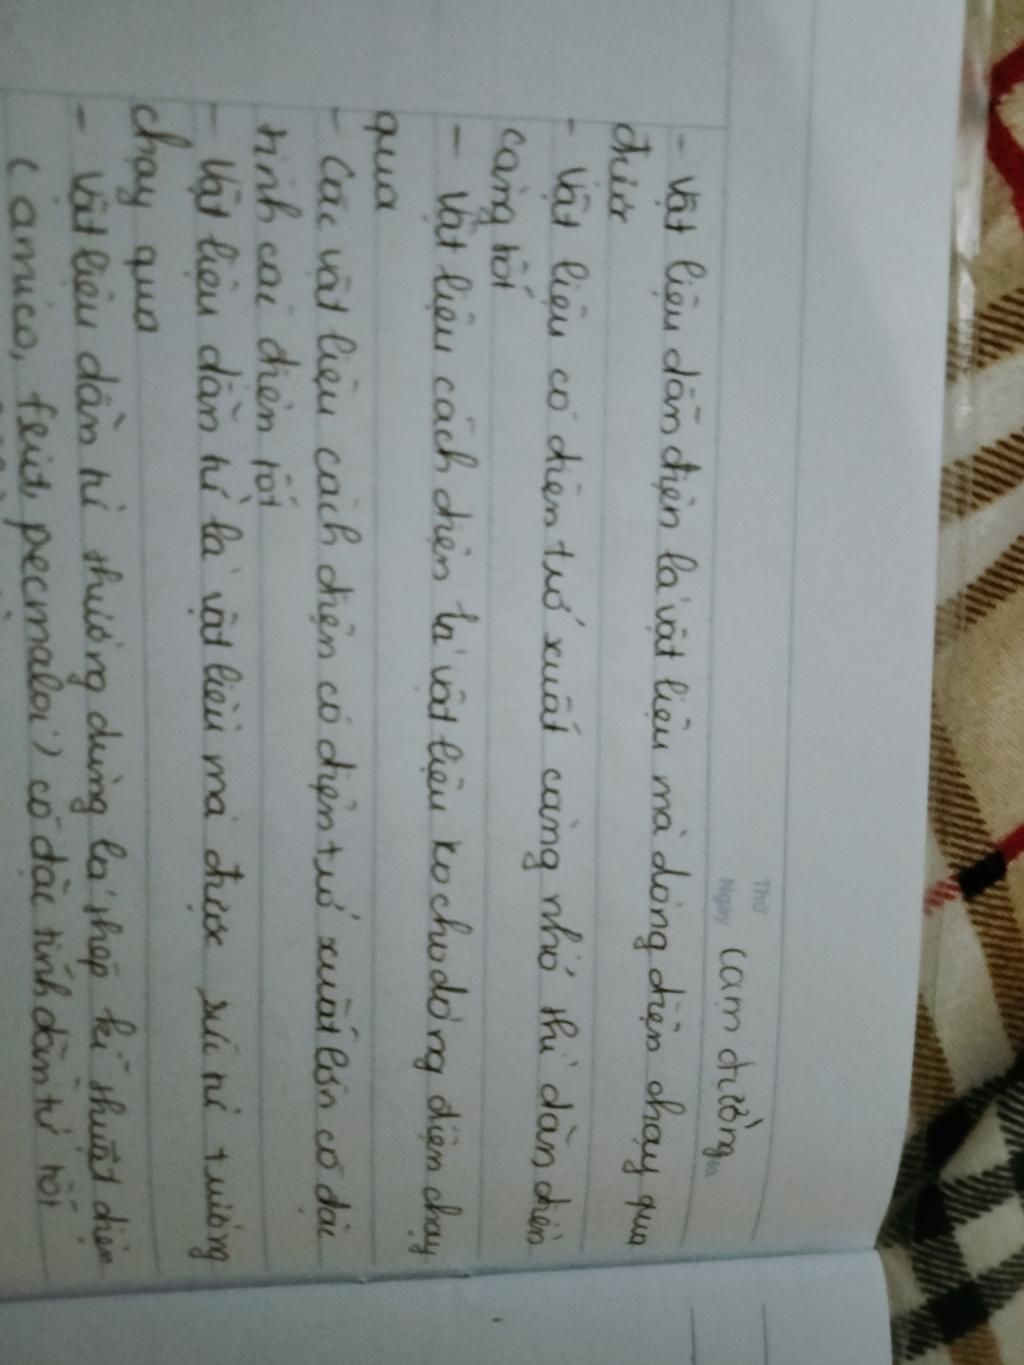 Thứ
Ngày
Cam đường
- Vật liệu dẫn điện là vật liệu mà dòng điện chạy qua
được
- Vật liệu có điện trở xuất càng nhỏ thì dẫn điện
càng tốt
- Vật liệu cách điện là vật liệu ko cho dòng điện chạy
qua
- Các vật liệu cách điện có điện trở xuất lớn có đặc
tính cái điện tốt
- Vật liệu dẫn từ là vật liệu mà được sức từ trường
chạy qua
- Vật liệu dẫn từ thường dùng là thép kĩ thuật điện
(anico, ferit, pecmaloi) có đặc tính dẫn từ tốt